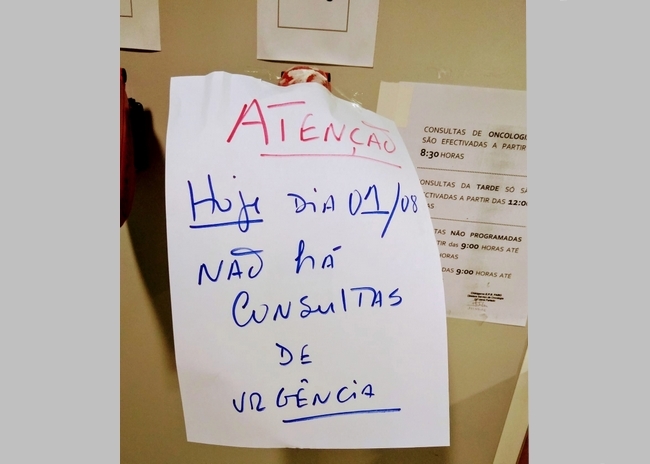 ATENÇÃO
Hoje DIA 01/08
NÃO HÁ
CONSULTAS
DE
URGÊNCIA
CONSULTAS DE ONCOLOG
SÃO EFECTIVADAS A PARTIR
8:30 HORAS
CONSULTAS DA TARDE SÓ SÃ
A PARTIR DAS 12:0
NÃO PROGRAMADAS
DAS 9:00 HORAS ATÉ
HORAS
DAS 9:00 HORAS ATÉ